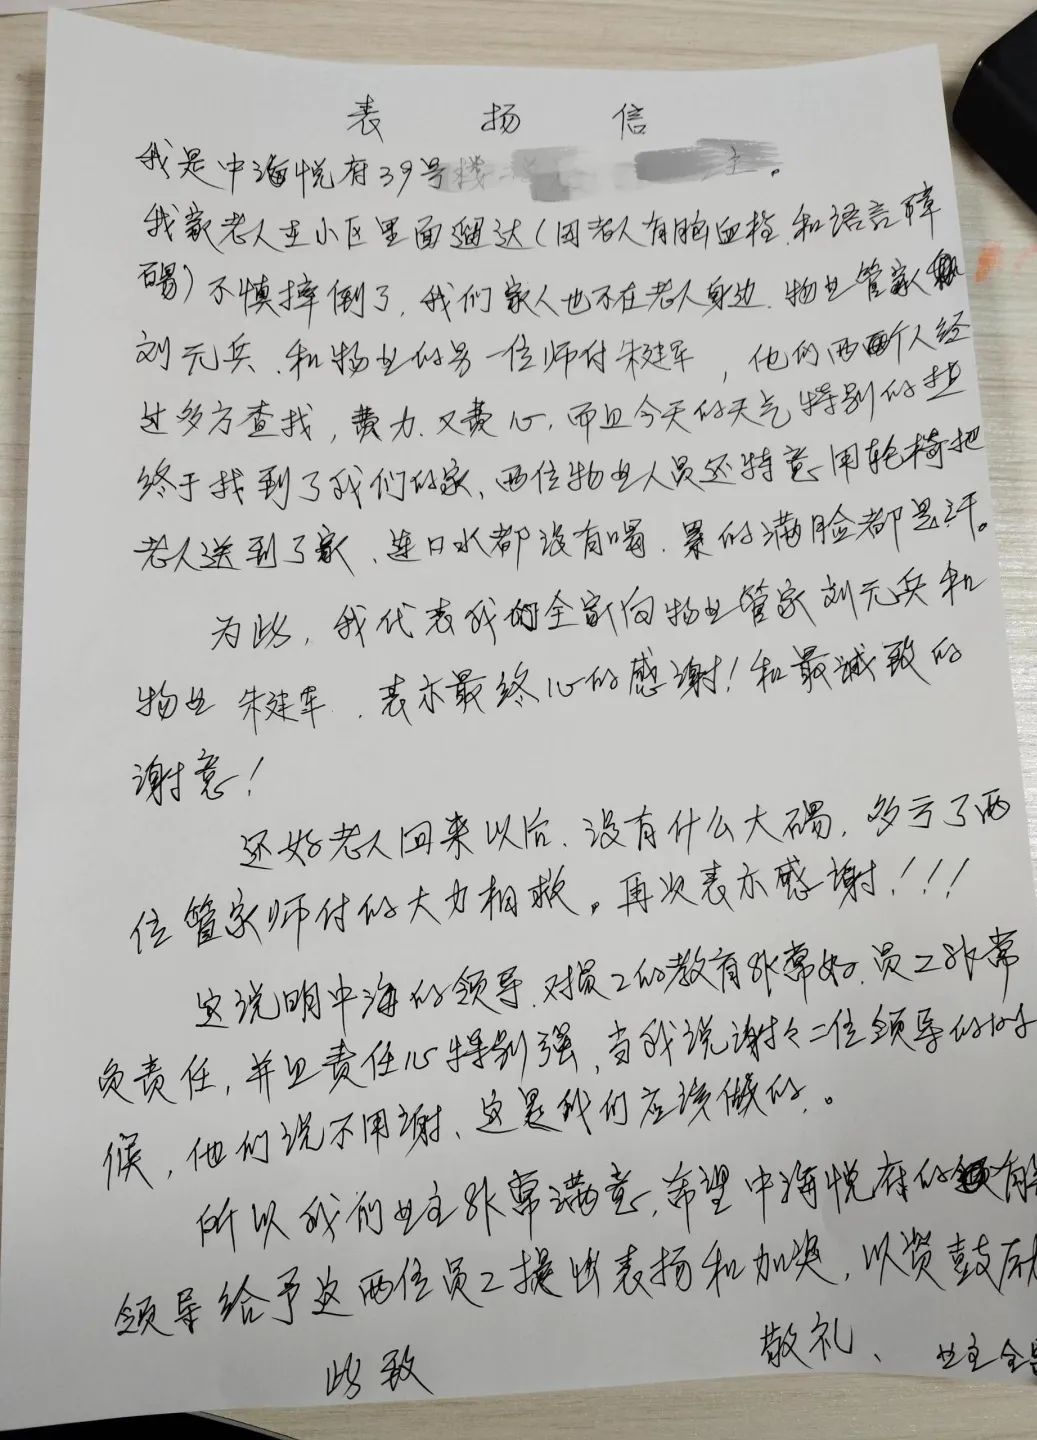 表扬信
我是中海悦府39号楼 主。
我家老人在小区里面遛达(因老人有脑血栓.和语言障
碍)不慎摔倒了,我们家人也不在老人身边.物业管家
刘元兵.和物业的另一位师付朱建军,他们两个人经
过多方查找,费力.又费心,而且今天的天气特别的热
终于找到了我们的家、两位物业人员还特意用轮椅把
老人送到了家、连口水都没有喝.累的满脸都是汗。
为此,我代表我的全家向物业管家刘元兵和
物业 朱建军.表示最终心的感谢!和最诚致的
谢意!
还好老人回来以后.没有什么大碍,多亏了两
位管家师付的大力相救。再次表示感谢!!!
这说明中海的领导.对员工的教育非常好.员工非常
负责任,并且责任心特别强,当我说谢々二位领导的时
候,他们说不用谢、这是我们应该做的.。
所以我们业主非常满意,希望中海悦府的有
领导给予这两位员工提出表扬和加奖,以资鼓励
此致 敬礼、 业主全